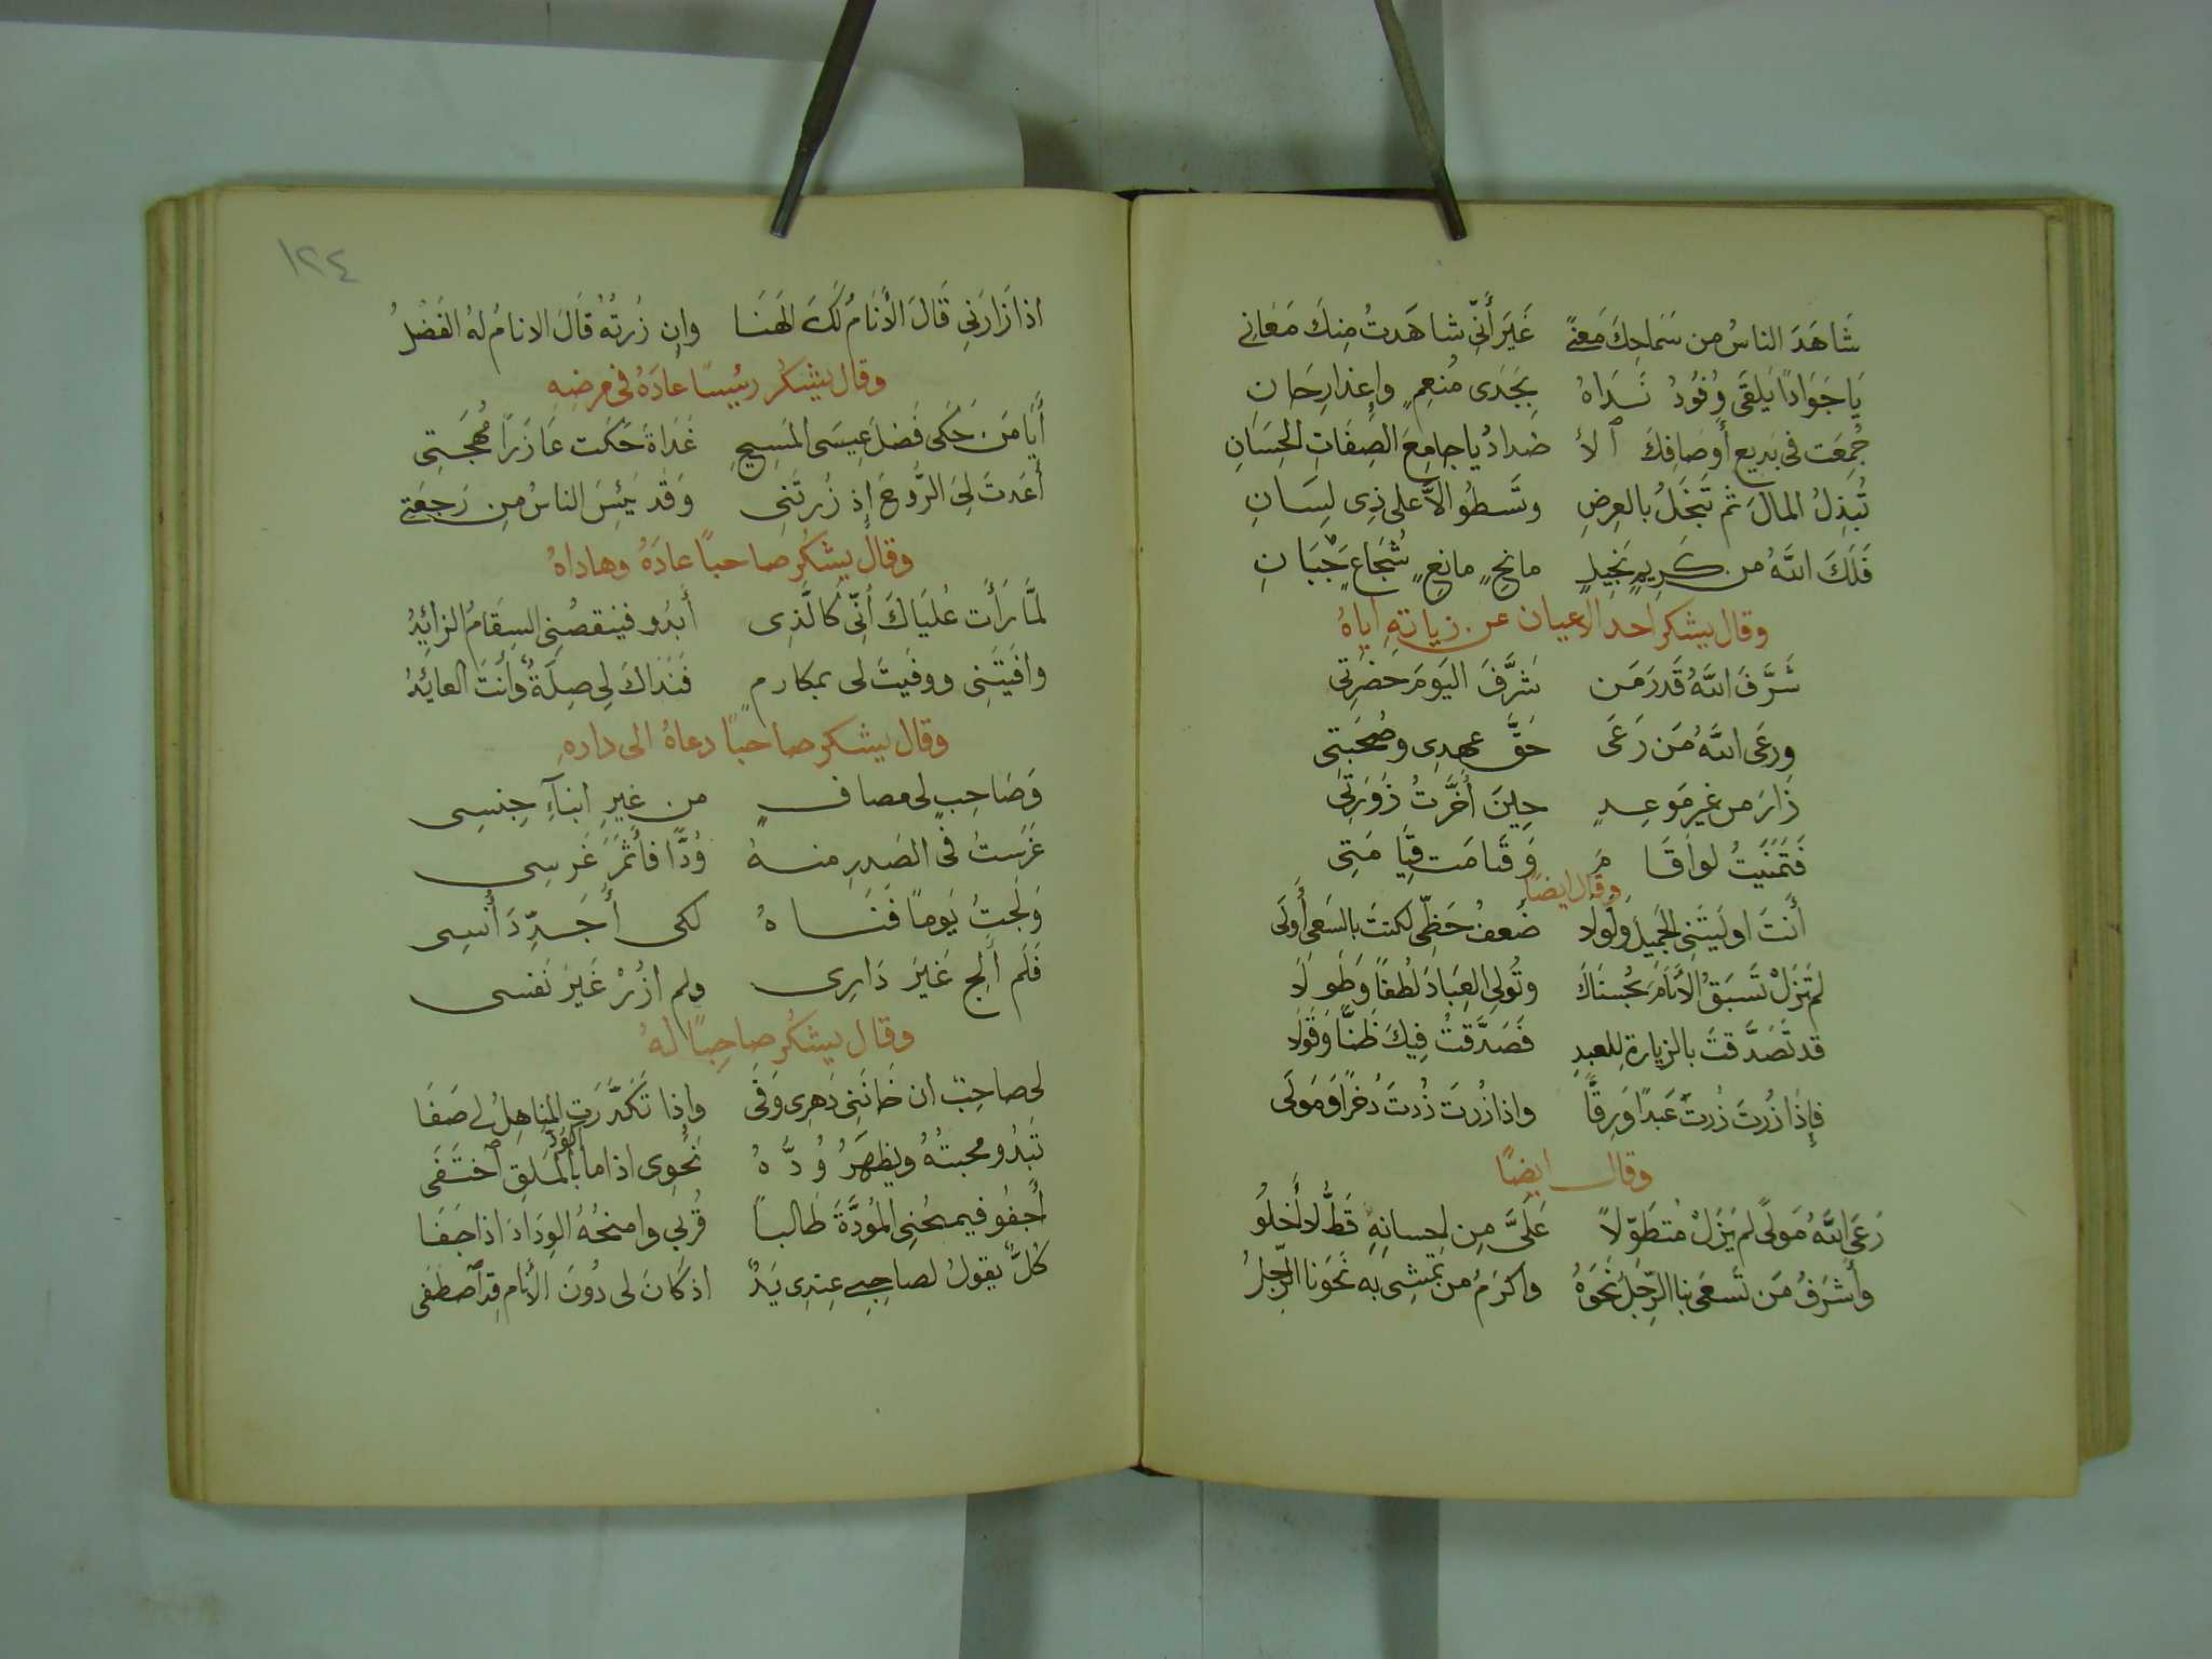 شَاهَدَ الناسُ من سَمَاحِكَ مَعنًى غَيرَ أَنِّي شاهَدتُ مِنكَ مَعَانِي
يَا جَوَادًا يَلقَى وُفُودُ نَدَاهُ بِجَدَى مُنعِمٍ وإعذارِ جَانِ
جُمِعَت فى بَديعِ أَوصَافِكَ ٱلأ ضدادُ يا جامِعَ الصِفَاتِ الحِسَانِ
تُبذِلُ المالَ ثم تَبخَلُ بالعِرضِ وتَسطُو الَّا على ذِى لِسَانِ
فَلَكَ اللَّهُ من كَرِيمٍ بَخِيلٍ مانحٍ مانعٍ شُجَاعٍ جَبَانِ
وقال يشكر احد الاعيان عن زيارتهِ اياهُ
شَرَّفَ اللَّهُ قَدرَ مَن شَرَّفَ اليَومَ حَضرَتِى
ورعَى اللَّهُ مَن رَعَى حَقَّ عهدِى وصُحبَتِى
زارَ من غيرِ مَوعِدٍ حِينَ أخَّرتُ زَورَتِى
فَتَمَنَّيتُ لو أَقَا مَ وَقَامَت قِيَامَتِى
وقال ايضًا
أَنتَ اولَيتَنِى الجَمِيلَ ولَولا ضُعفُ حَظِّى لكنتَ بالسَعىِ أَولَى
لم تَزَلْ تَسبَقُ الأَنَامَ بحُسنَاكَ وتُولِى العِبَادَ لُطفًا وَطَولَا
قد تَصَدَّقتَ بالزيارةِ للعبدِ فَصَدَّقتُ فِيكَ ظَنًّا وَقَولَا
فإذا زُرتَ زُرتَ عَبدًا وَرِقًّا واذا زُرتَ زُرتَ ذُخرًا وَمَولَى
وقال ايضًا
رَعَى اللَّهُ مَولًى لم يَزَلْ مُتطَوِّلاً عَلَىَّ مِن احسانِهِ قَطُّ لا أَخلُو
وأَشرَفُ مَن تَسعَى بنا الرِّجلُ نَحوَهُ واكرَمُ من تمشِى به نَحوَنا الرِّجلُ
١٢٤
اذا زَارَنِي قَالَ الأَنَامُ لَكَ الهَنَا وإن زُرتُهُ قَالَ الانامُ لهُ الفَضلُ
وقال يشكر رئيسًا عادَهُ فى مرضِهِ
أَيَا مَن حَكَى فَضلَ عِيسَى المَسِيحِ غَدَاةَ حَكَت عَازَرًا مُهجَتِى
أَعَدتَ لِىَ الرُّوحَ إذ زُرتَنِى وَقَد يَئِسَ الناسُ مِن رَجعَتِى
وقال يشكُر صاحبًا عادَهُ وهاداهُ
لمَّا رَأَت عُليَاكَ أَنِّى كَالَّذِى أَبدُو فينقصُنِى السِقَامُ الزائِدُ
وافَيتَنِى ووفَيتَ لى بمكارمٍ فَنَدَاكَ لِى صِلَةٌ وأنتَ العائِدُ
وقال يشكر صاحبًا دعاهُ الى دارهِ
وَصَاحِبٍ لى مصافٍ من غيرِ ابنآءِ جِنسِى
غَرَستُ فى الصَدرِ منهُ وُدًّا فأَثمَرَ غَرسِى
وَلَجتُ يَومًا فَنَاهُ لكى أُجَدِّدَ أُنسِى
فَلَم أَلِج غَيرَ دَارِى ولم ازُرْ غَيرَ نَفسى
وقال يشكُر صاحِبًا لهُ
لى صاحِبٌ ان خَانَنِى دَهرِى وَفَى وإذا تَكَدَّرَتِ المناهِلُ لى صَفَا
تَبدُو محبتُهُ ويَظهَرُ وُدُّهُ نَحوِى اذا ما الوُدُّ بالمَلقِ ٱختَفَى
أَجفُو فيمنحُنِى المَوَدَّةَ طَالبًا قُربي وامنحُهُ الوِدَادَ اذا جَفَا
كُلٌّ يقولُ لصاحِبِى عِندِى يَدٌ اذ كَانَ لى دُونَ الأَنام قدِ ٱصطَفَى